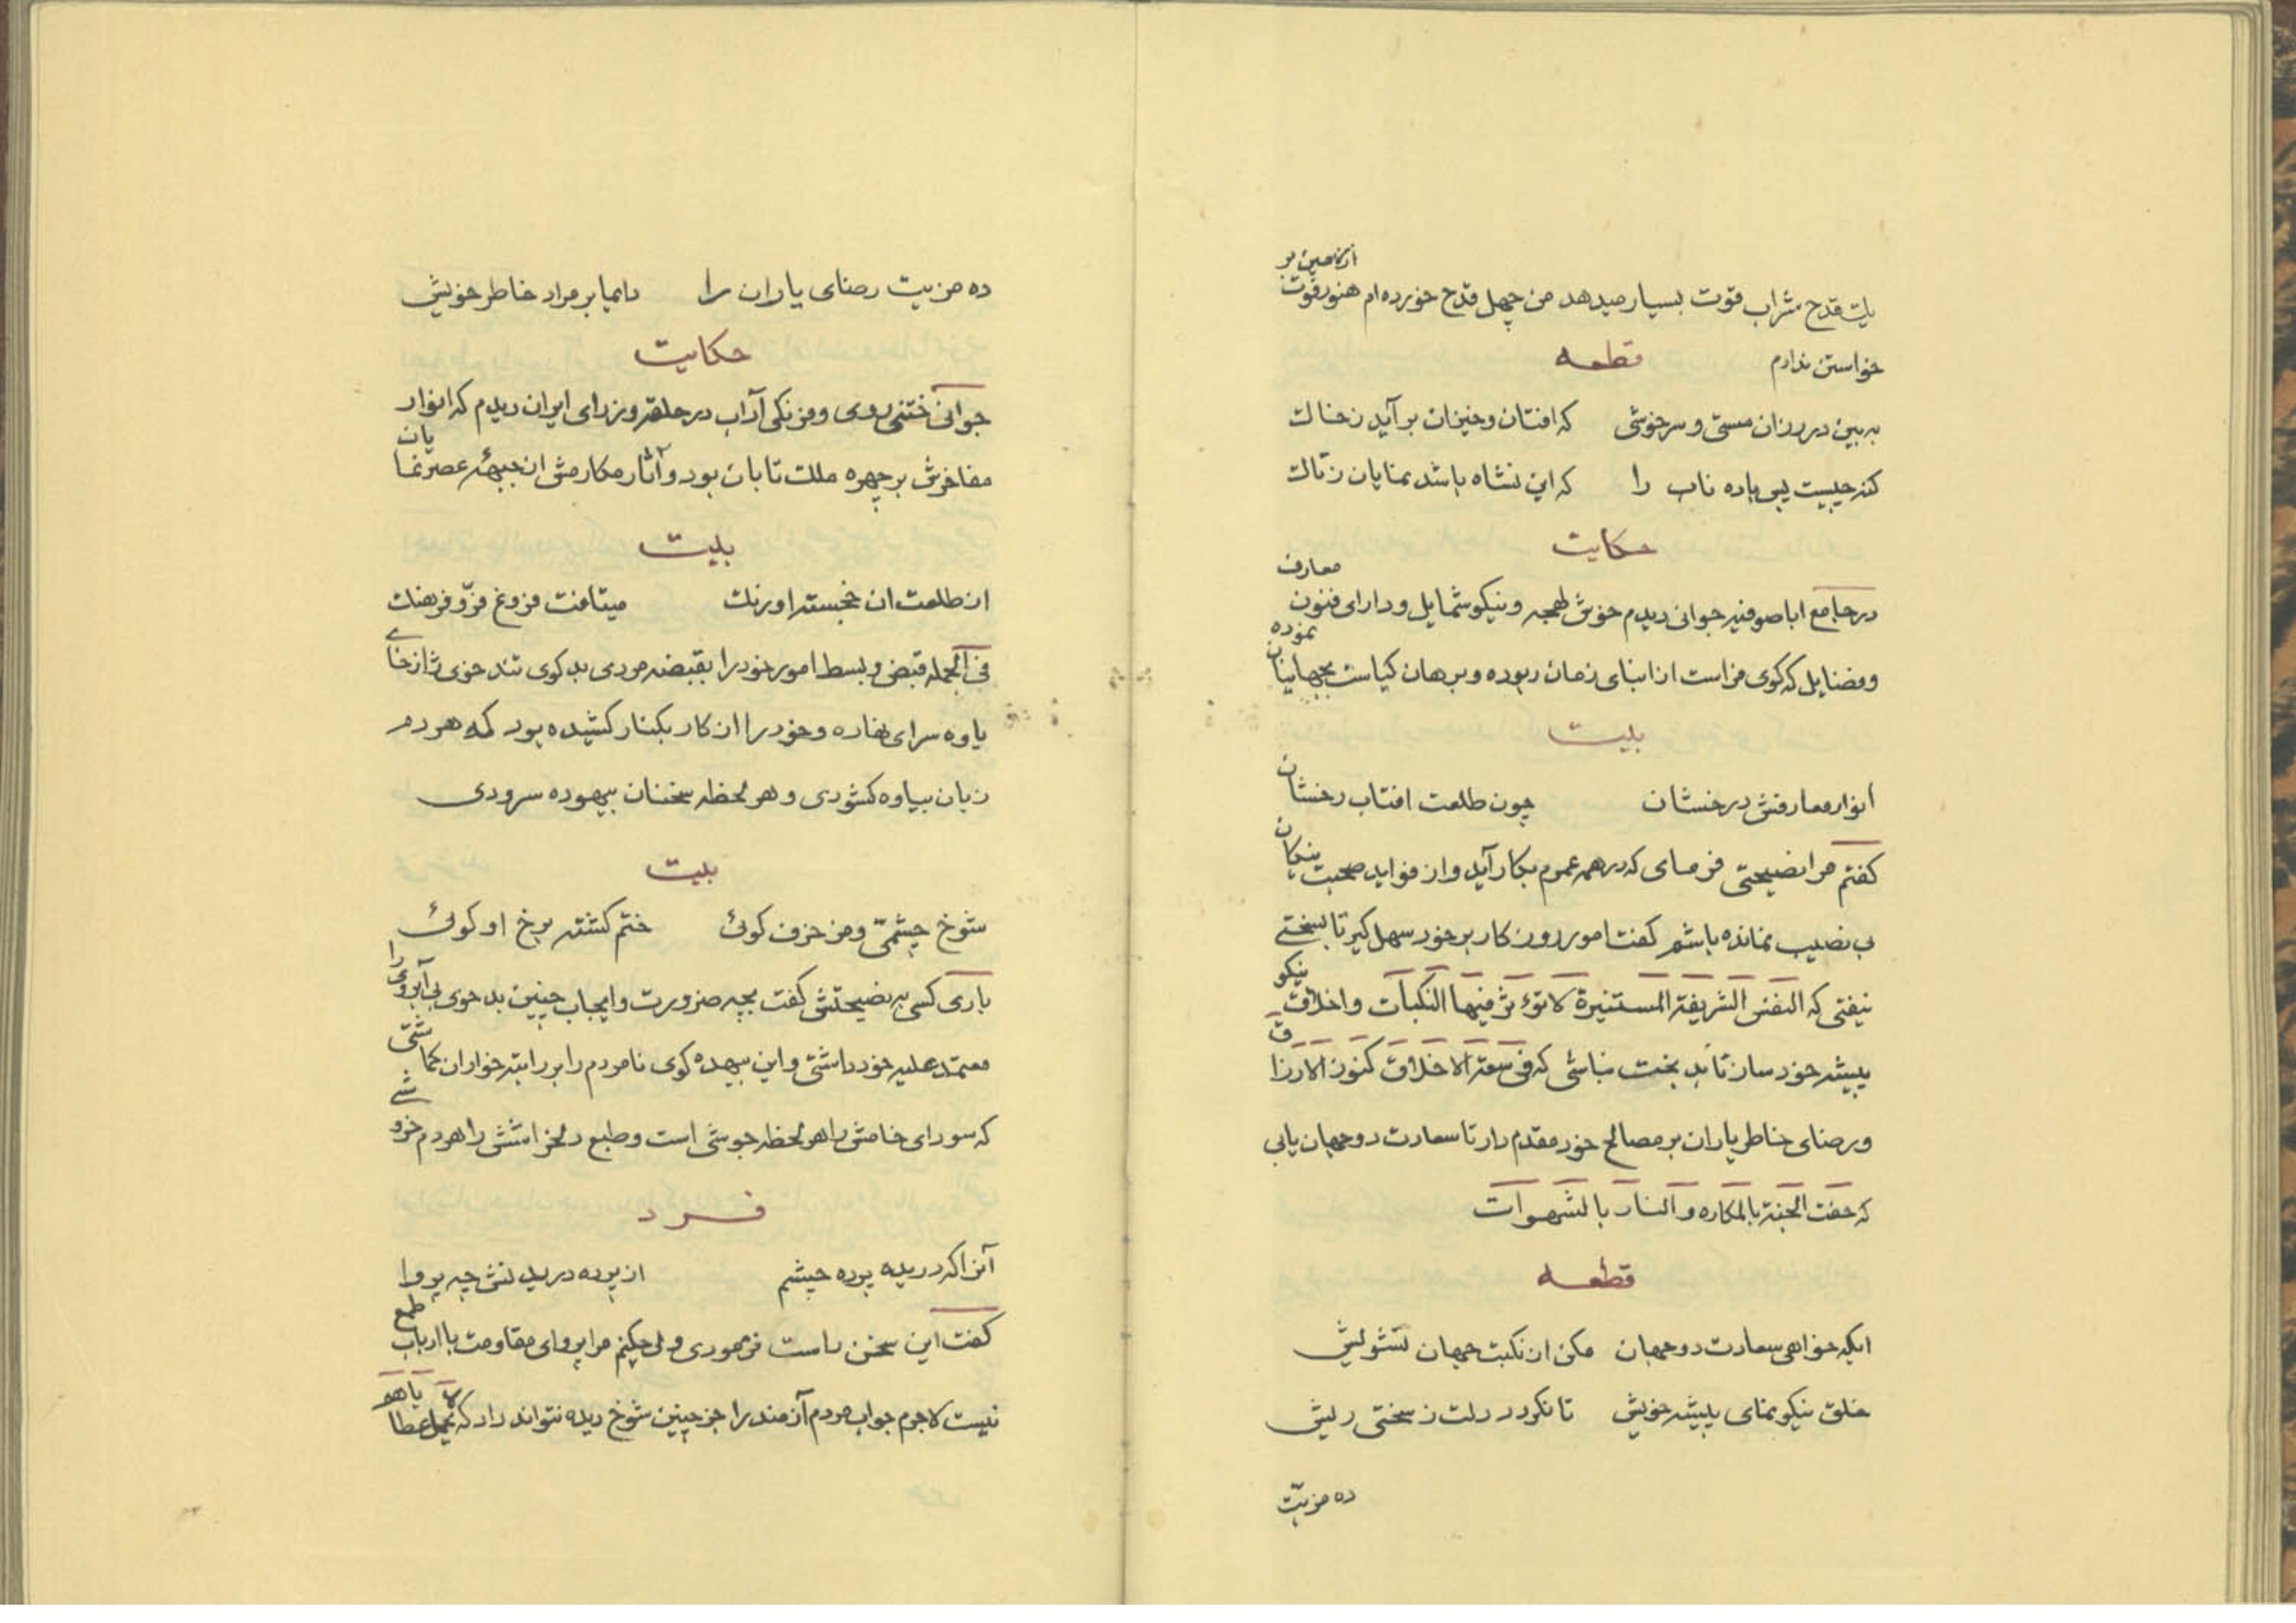 یک قدح شراب قوت بسیار میدهد من چهل قدح خورده ام هنوز قوت از زمین بر
خواستن ندارم
قطعه
به بین در رزان مستی و سرخوشی که افتان و خیزان بر آید زخاک
کنه چیست پس باده ناب را که این نشاه باشد نمایان زتاک
حکایت
در جامع اباصوفیه جوانی دیدم خوش لهجه و نیکو شمایل و دارای فنون معارف
و فضایل که کوی فراست از ابنای زمان ربوده و برهان کیاست بجهانیان نموده
بیت
انوار معارفش درخشان چون طلعت افتاب رخشان
کفتم مرا نصیحتی فرمای که در همه عمرم بکار آید و از فواید صحبت نیکان
بی نصیب نمانده باشم کفت امور روزکار بر خود سهل کیر تا بسختی
نیفتی که النفس الشریفة المستنیرة لا تؤثر فیها النکبات و اخلاق نیکو
پیشه خود ساز تا بد بخت نباشی که فی سعة الاخلاق کنوز الارزاق
و رضای خاطر یاران بر مصالح خود مقدم دار تا سعادت دو جهان یابی
که حفت الجنة بالمکاره و النار بالشهوات
قطعه
ایکه خواهی سعادت دو جهان مکن از نکبت جهان تشویش
خلق نیکو نمای پیشه خویش تا نکردد دلت ز سختی ریش
ده مزیّت
ده مزیت رضای یاران را دایما بر مراد خاطر خویش
حکایت
جوانی ختنی روی و فرنکی آداب در حلقه وزرای ایران دیدم که انوار
مفاخرش بر چهره ملک تابان بود و آثار مکارمش از جبهه عصر نمایان
بیت
از طلعت ان خجسته اورنک میتافت فروغ فرّ و فرهنک
فی الجمله قبض و بسط امور خود را بقبضه مردی بد کوی تند خوی ژاژ خای
یاوه سرای نهاده و خود را از کار بکنار کشیده بود که هر دم
زبان بیاوه کشودی و هر لحظه سخنان بیهوده سرودی
بیت
شوخ چشمیّ و مزخرف کوئی ختم کشته برخ او کوئی
باری کسی به نصیحتش کفت بچه ضرورت و ایجاب چنین بد خوی بی آبروی را
معتمد علیه خود داشتی و این بیهده کوی نامردم را بر راتبه خواران کماشتی
که سودای خامش را هر لحظه جوشی است و طبع دلخراشش را هر دم خروشی
فرد
آنرا که دریده پرده چشم از پرده دریدنش چه پروا
کفت این سخن راست فرمودی ولی چکنم مرا پروای مقاومت با ارباب طمع
نیست لاجرم جواب مردم آزمند را جز چنین شوخ دیده نتواند داد که